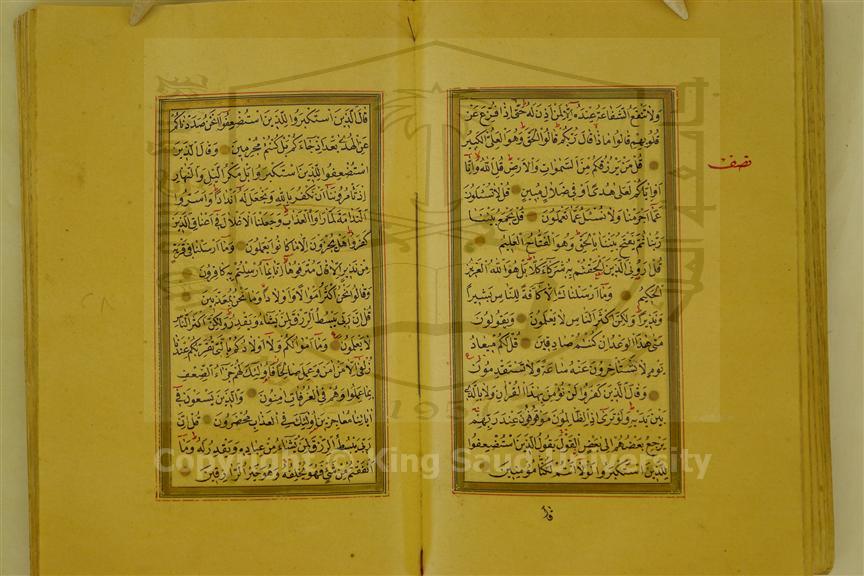 ولا تنفع الشفاعة عنده إلا لمن أذن له حتى إذا فزع عن
قلوبهم قالوا ماذا قال ربكم قالوا الحق وهو العلي الكبير
قل من يرزقكم من السموات والأرض قل الله وإنا
أو إياكم لعلى هدى أو في ضلال مبين قل لا تسئلون
عما أجرمنا ولا نسئل عما تعملون قل يجمع بيننا
ربنا ثم يفتح بيننا بالحق وهو الفتاح العليم
قل أروني الذين ألحقتم به شركاء كلا بل هو الله العزيز
الحكيم وما أرسلناك إلا كافة للناس بشيرا
ونذيرا ولكن أكثر الناس لا يعلمون ويقولون
متى هذا الوعد إن كنتم صادقين قل لكم ميعاد
يوم لا تستأخرون عنه ساعة ولا تستقدمون
وقال الذين كفروا لن نؤمن بهذا القرآن ولا بالذي
بين يديه ولو ترى إذ الظالمون موقوفون عند ربهم
يرجع بعضهم إلى بعض القول يقول الذين استضعفوا
للذين استكبروا لولا أنتم لكنا مؤمنين
قال
نصف
قال الذين استكبروا للذين استضعفوا أنحن صددناكم
عن الهدى بعد إذ جاءكم بل كنتم مجرمين وقال الذين
استضعفوا للذين استكبروا بل مكر الليل والنهار
إذ تأمروننا أن نكفر بالله ونجعل له أندادا وأسروا
الندامة لما رأوا العذاب وجعلنا الأغلال في أعناق الذين
كفروا هل يجزون إلا ما كانوا يعملون وما أرسلنا في قرية
من نذير إلا قال مترفوها إنا بما أرسلتم به كافرون
وقالوا نحن أكثر أموالا وأولادا وما نحن بمعذبين
قل إن ربي يبسط الرزق لمن يشاء ويقدر ولكن أكثر الناس
لا يعلمون وما أموالكم ولا أولادكم بالتي تقربكم عندنا
زلفى إلا من آمن وعمل صالحا فأولئك لهم جزاء الضعف
بما عملوا وهم في الغرفات آمنون والذين يسعون في
آياتنا معاجزين أولئك في العذاب محضرون قل إن
ربي يبسط الرزق لمن يشاء من عباده ويقدر له وما
أنفقتم من شيء فهو يخلفه وهو خير الرازقين
Copyright © King Saud University
1957